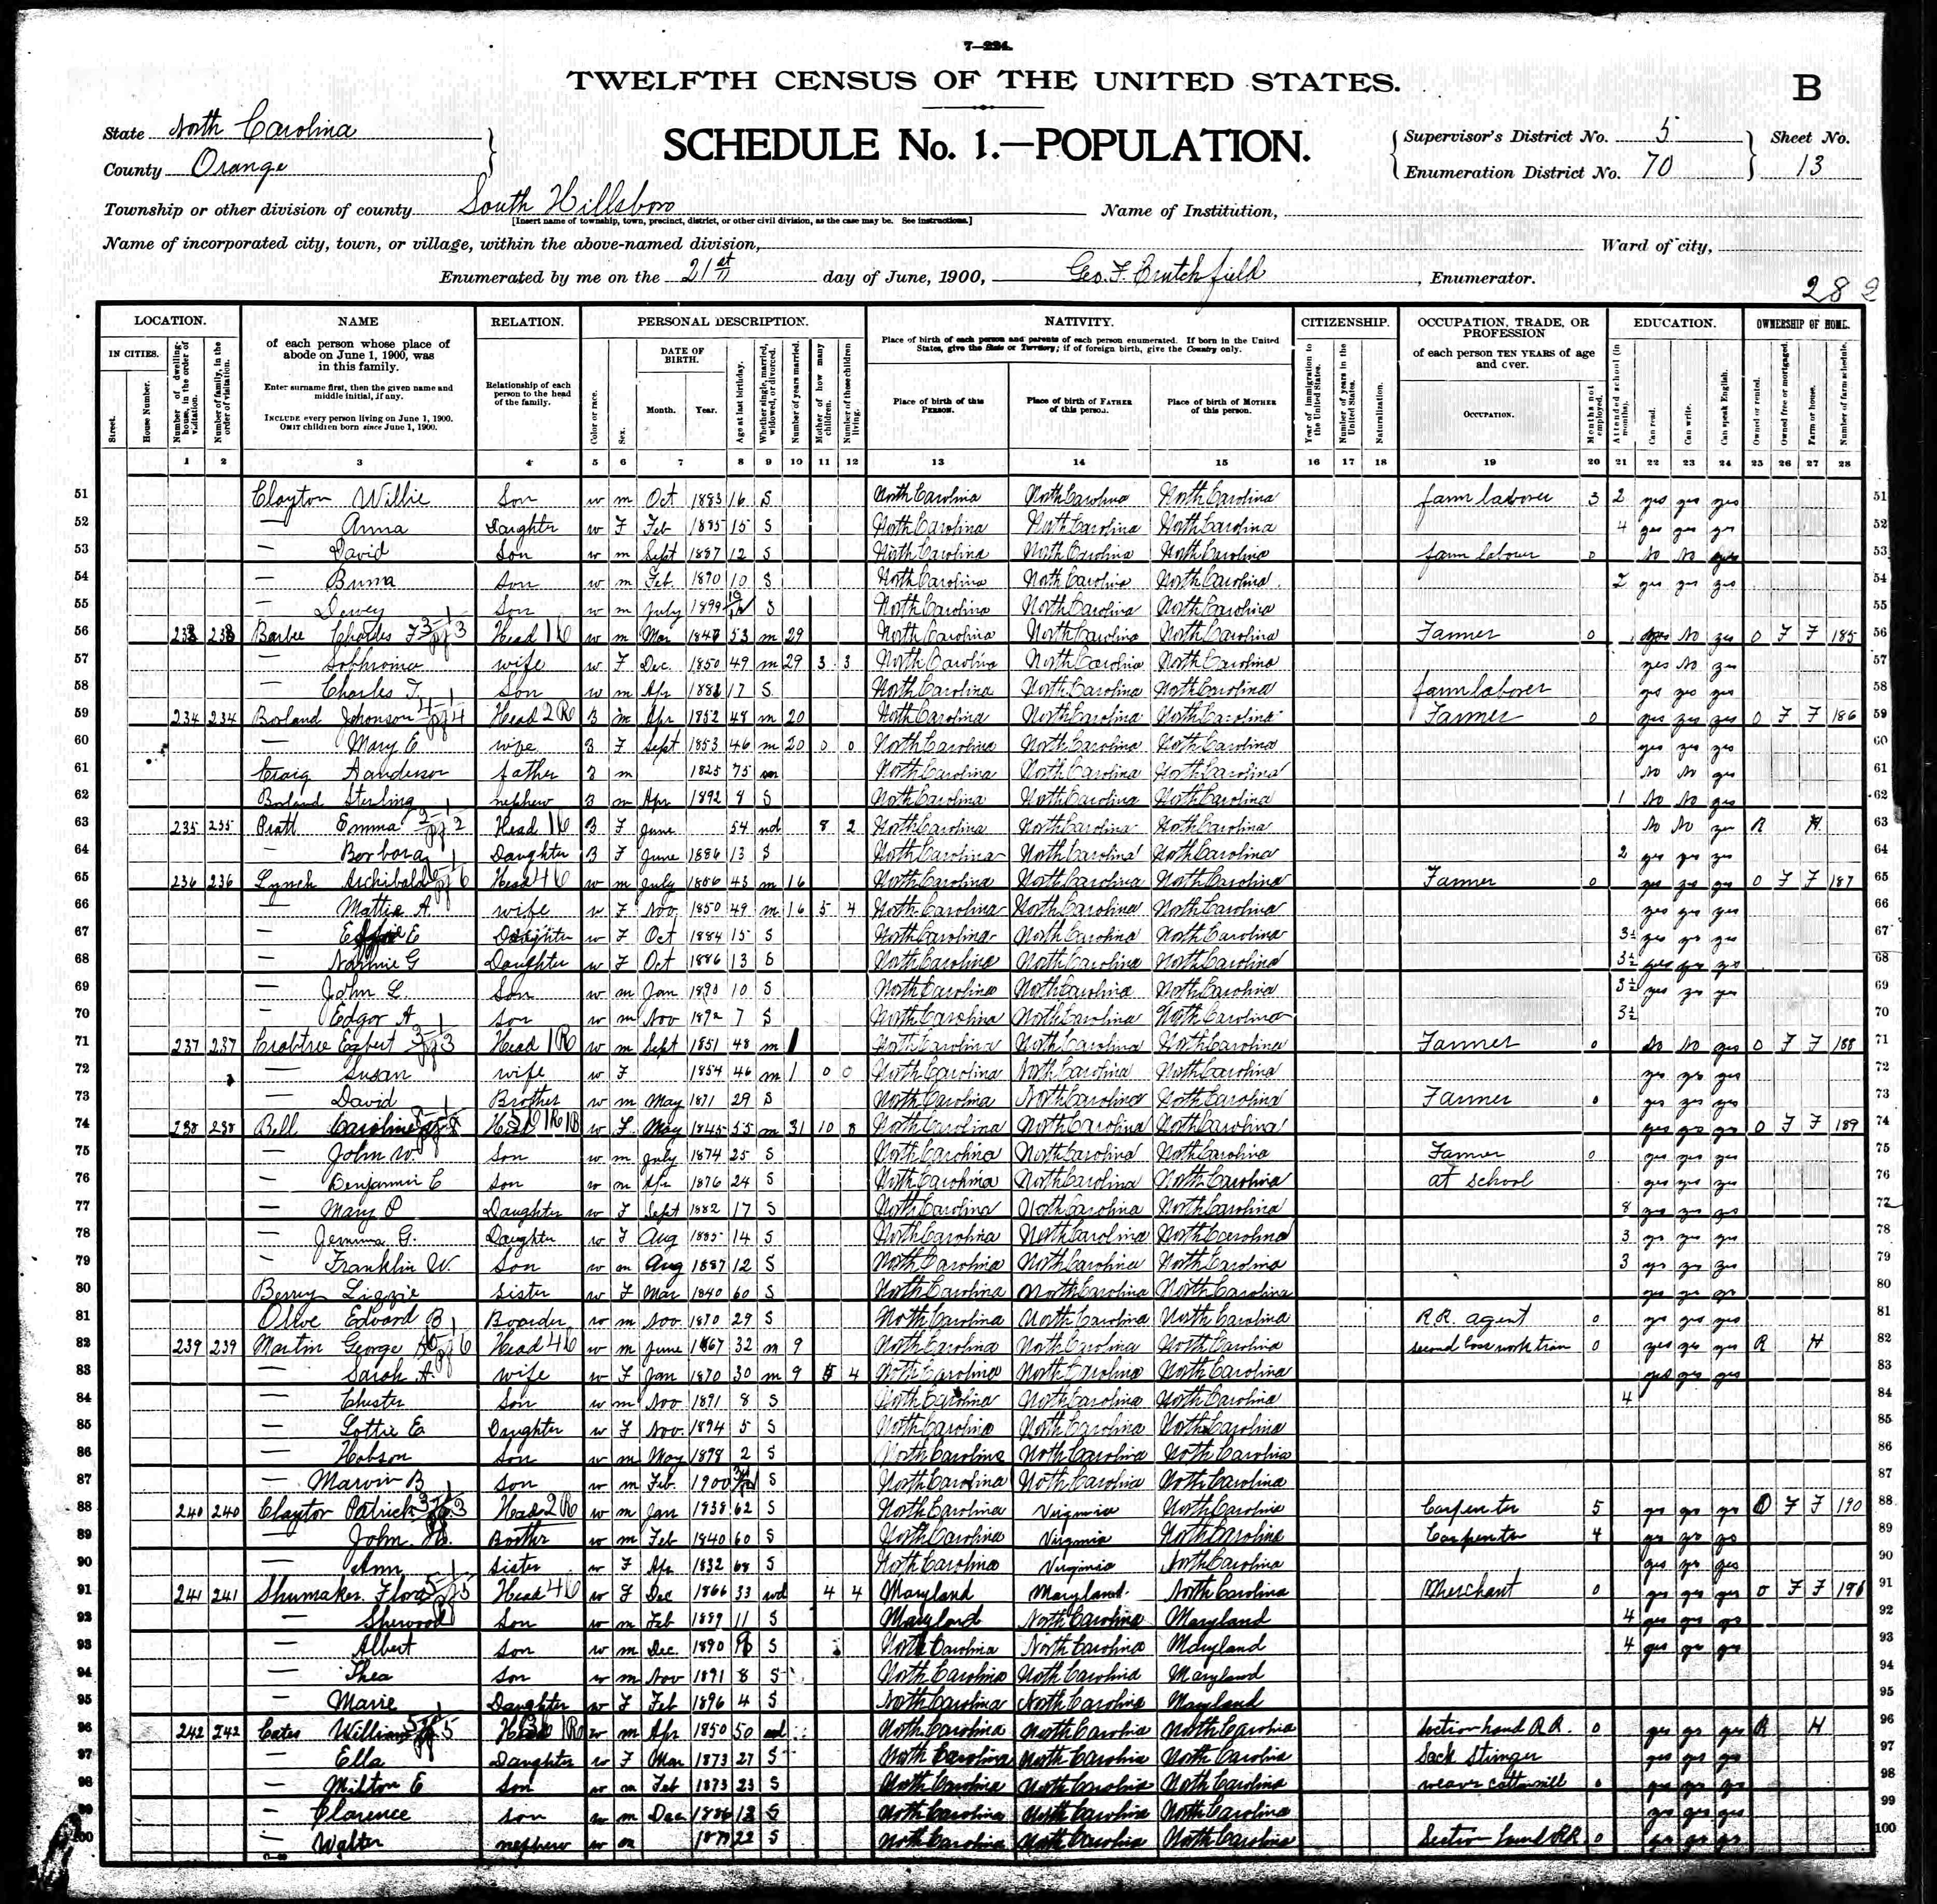 7—224.
TWELFTH CENSUS OF THE UNITED STATES.
B
State North Carolina
County Orange
SCHEDULE No. 1.—POPULATION.
Supervisor's District No. 5
Enumeration District No. 70
Sheet No.
13
Township or other division of county South Hillsboro
[Insert name of township, town, precinct, district, or other civil division, as the case may be. See instructions.]
Name of Institution,
Name of incorporated city, town, or village, within the above-named division,
Ward of city,
Enumerated by me on the 21st day of June, 1900, Geo. F. Crutchfield, Enumerator.
282
LOCATION. NAME RELATION. PERSONAL DESCRIPTION. NATIVITY. CITIZENSHIP. OCCUPATION, TRADE, OR PROFESSION EDUCATION. OWNERSHIP OF HOME.
IN CITIES.
Street.
House Number.
Number of dwelling-house, in the order of visitation.
Number of family, in the order of visitation.
of each person whose place of abode on June 1, 1900, was in this family.
Enter surname first, then the given name and middle initial, if any.
INCLUDE every person living on June 1, 1900.
OMIT children born since June 1, 1900.
Relationship of each person to the head of the family.
Color or race.
Sex.
DATE OF BIRTH.
Month. Year.
Age at last birthday.
Whether single, married, widowed, or divorced.
Number of years married.
Mother of how many children.
Number of these children living.
Place of birth of each person and parents of each person enumerated. If born in the United States, give the State or Territory; if of foreign birth, give the Country only.
Place of birth of this PERSON.
Place of birth of FATHER of this person.
Place of birth of MOTHER of this person.
Year of immigration to the United States.
Number of years in the United States.
Naturalization.
of each person TEN YEARS of age and over.
OCCUPATION.
Months not employed.
Attended school (in months).
Can read.
Can write.
Can speak English.
Owned or rented.
Owned free or mortgaged.
Farm or house.
Number of farm schedule.
1 2 3 4 5 6 7 8 9 10 11 12 13 14 15 16 17 18 19 20 21 22 23 24 25 26 27 28
51 Clayton Willie Son w m Oct 1883 16 S North Carolina North Carolina North Carolina farm laborer 3 2 yes yes yes 51
52 — Anna Daughter w F Feb 1885 15 S North Carolina North Carolina North Carolina 4 yes yes yes 52
53 — David Son w m Sept 1887 12 S North Carolina North Carolina North Carolina farm laborer 0 No No yes 53
54 — Son w m Feb. 1890 10 S North Carolina North Carolina North Carolina 2 yes yes yes 54
55 — Dewey Son w m July 1899 S North Carolina North Carolina North Carolina 55
56 233 233 Barbee Charles F Head w m Mar 1847 53 m 29 North Carolina North Carolina North Carolina Farmer 0 No yes O F F 185 56
57 — wife w F Dec. 1850 49 m 29 3 3 North Carolina North Carolina North Carolina yes No yes 57
58 — Charles T. Son w m Apr 17 S North Carolina North Carolina North Carolina farm laborer yes yes yes 58
59 234 234 Borland Johonson Head B m Apr 1852 48 m 20 North Carolina North Carolina North Carolina Farmer 0 yes yes yes O F F 186 59
60 — Mary E wife B F Sept 1853 46 m 20 0 0 North Carolina North Carolina North Carolina yes yes yes 60
61 Craig Aanderson father B m 1825 75 North Carolina North Carolina North Carolina No No yes 61
62 Borland Sterling nephew B m Apr 1892 8 S North Carolina North Carolina North Carolina 1 No No yes 62
63 235 235 Pratt Emma Head B F June 54 wd 8 2 North Carolina North Carolina North Carolina No No yes R H 63
64 — Borbora Daughter B F June 1886 13 S North Carolina North Carolina North Carolina 2 yes yes yes 64
65 236 236 Lynch Archibald Head w m July 1856 43 m 16 North Carolina North Carolina North Carolina Farmer 0 yes yes yes O F F 187 65
66 — Mattie A. wife w F Nov 1850 49 m 16 5 4 North Carolina North Carolina North Carolina yes yes yes 66
67 — E Daughter w F Oct 1884 15 S North Carolina North Carolina North Carolina 3½ yes yes yes 67
68 — Nannie G Daughter w F Oct 1886 13 S North Carolina North Carolina North Carolina 3½ yes yes yes 68
69 — John L. Son w m Jan 1890 10 S North Carolina North Carolina North Carolina 3½ yes yes yes 69
70 — Edgor A son w m Nov 1892 7 S North Carolina North Carolina North Carolina 3½ 70
71 237 237 Crabtree Egbert Head w m Sept 1851 48 m 1 North Carolina North Carolina North Carolina Farmer 0 No No yes O F F 188 71
72 — Susan wife w F 1854 46 m 1 0 0 North Carolina North Carolina North Carolina yes yes yes 72
73 — David Brother w m May 1871 29 S North Carolina North Carolina North Carolina Farmer 0 yes yes yes 73
74 238 238 Bell Caroline Head w F May 1845 55 m 31 10 8 North Carolina North Carolina North Carolina yes yes yes O F F 189 74
75 — John W. Son w m July 1874 25 S North Carolina North Carolina North Carolina Farmer 0 yes yes yes 75
76 — Benjamin E son w m Apr 1876 24 S North Carolina North Carolina North Carolina at school yes yes yes 76
77 — Mary P Daughter w F Sept 1882 17 S North Carolina North Carolina North Carolina 8 yes yes yes 77
78 — Jemima G. Daughter w F Aug 1885 14 S North Carolina North Carolina North Carolina 3 yes yes yes 78
79 — Franklin W. Son w m Aug 1887 12 S North Carolina North Carolina North Carolina 3 yes yes yes 79
80 Berry Lizzie Sister w F Mar 1840 60 S North Carolina North Carolina North Carolina yes yes yes 80
81 Olive Edward B Boarder w m Nov 1870 29 S North Carolina North Carolina North Carolina R.R. agent 0 yes yes yes 81
82 239 239 Martin George Head w m June 1867 32 m 9 North Carolina North Carolina North Carolina second boss work train 0 yes yes yes R H 82
83 — Sarah A. wife w F Jan 1870 30 m 9 5 4 North Carolina North Carolina North Carolina yes yes yes 83
84 — Chester Son w m Nov 1891 8 S North Carolina North Carolina North Carolina 4 84
85 — Lottie E Daughter w F Nov. 1894 5 S North Carolina North Carolina North Carolina 85
86 — Hobson Son w m May 1898 2 S North Carolina North Carolina North Carolina 86
87 — Marvin B son w m Feb 1900 S North Carolina North Carolina North Carolina 87
88 240 240 Claytor Patrick Head w m Jan 1838 62 S North Carolina Virginia North Carolina Carpenter 5 yes yes yes O F F 190 88
89 — John. Brother w m Feb 1840 60 S North Carolina Virginia North Carolina Carpenter 4 yes yes yes 89
90 — Ann Sister w F Apr 1832 68 S North Carolina Virginia North Carolina yes yes yes 90
91 241 241 Shumaker Flora Head w F Dec 1866 33 wd 4 4 Maryland Maryland North Carolina Merchant 0 yes yes yes O F F 91
92 — Sherwood Son w m Feb 1889 11 S Maryland North Carolina Maryland 4 yes yes yes 92
93 — Albert son w m Dec. 1890 9 S North Carolina North Carolina Maryland 4 yes yes yes 93
94 — Shea son w m Nov 1891 8 S North Carolina North Carolina Maryland 94
95 — Marie Daughter w F Feb 1896 4 S North Carolina North Carolina Maryland 95
96 242 242 Cates William Head w m Apr 1850 50 wd North Carolina North Carolina North Carolina Section hand R.R. 0 yes yes yes R H 96
97 — Ella Daughter w F Mar 1873 27 S North Carolina North Carolina North Carolina Sack Stringer yes yes yes 97
98 — Milton E Son w m Feb 1873 23 S North Carolina North Carolina North Carolina weaver cotton mill 0 yes yes yes 98
99 — Clarence son w m Dec 1886 13 S North Carolina North Carolina North Carolina yes yes yes 99
100 — Walter nephew w m 22 S North Carolina North Carolina North Carolina Section hand RR 0 yes yes yes 100